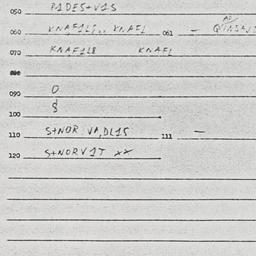 050 P1DES+V1S
060 KNAF1L8,, KNAFL 061 -
070 KNAF1L8 KNAFL
080
090 O
100 $
110 S+NOR VA,DL15 111 -
120 S+NORV1T xx